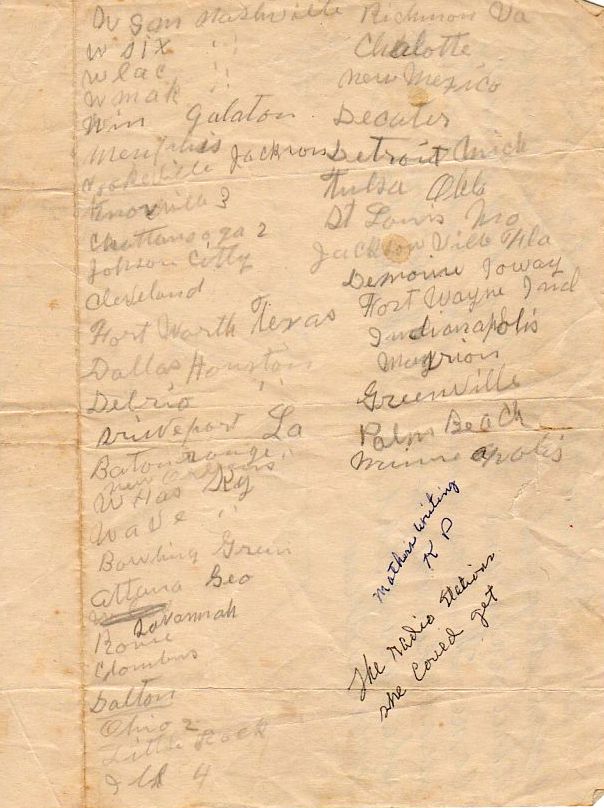 W Sm Nashville
W six " "
W lac " "
W mak "
Win Galaton
Memphis
Cookeville Jackson
Knoxville 3
Chattanooga 2
Johson Citty
Cleveland
Fort Worth Texas
Dallas Houston
Delrio " "
Shreveport La
Baton rouge "
new orleans "
W Has Ky
Wave " "
Bowling Green
attana Geo
Savannah
Rome
Colombus
Dalton
Ohio 2
Little Rock
Ill 4
Richmon Va
Chalotte
new Mexico
Decater
Detroit Mich
Tulsa Okla
St Louis Mo
Jackson Ville Fla
Demoine Ioway
Fort Wayne Ind
Indianapolis
Greenville
Palm Beach
Minneapolis
Mother's writing
K P
The radio stations
she could get